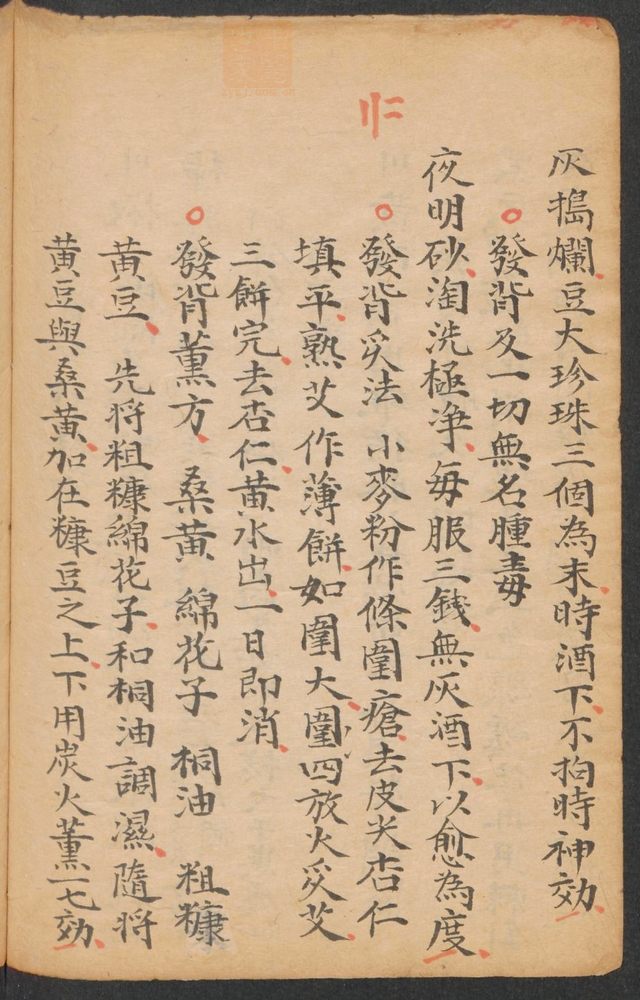 灰搗爛豆大珍珠三個為末時酒下不拘時神効
發背及一切無名腫毒
夜明砂淘洗極浄每服三銭無灰酒下以愈為度
發背灸法 小麥粉作條圍瘡去皮尖杏仁
填平熟艾作薄餅如圍大圍四放火灸艾
三餅完去杏仁黄水出一日即消
發背薰方 桑黄 綿花子 桐油 粗糠
黄豆 先将粗糠綿花子和桐油調濕隨将
黄豆與桑黄加在糠豆之上下用炭火薰一七効